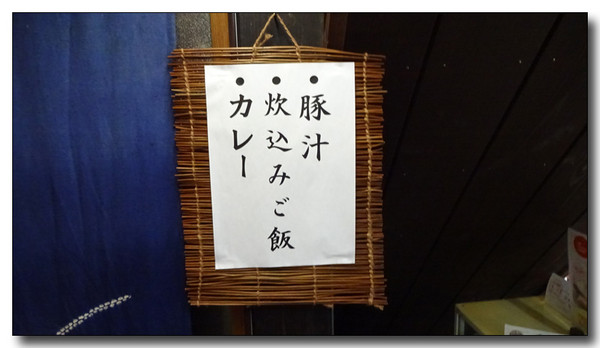 ●豚汁
●炊込みご飯
●カレー